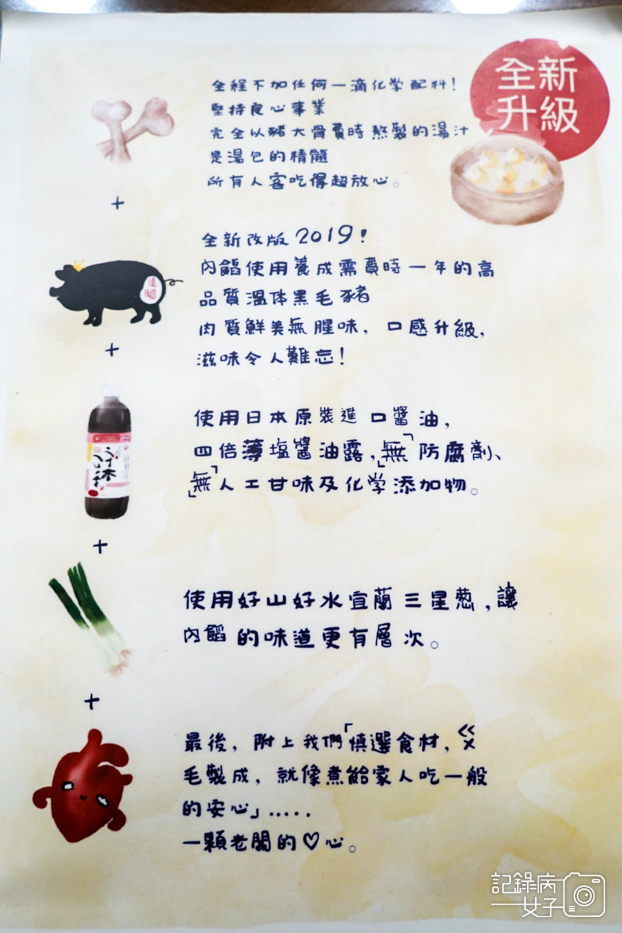 全新
升級
全程不加任何一滴化学配料!
堅持良心事業
完全以豬大骨費時熬製的湯汁
是湯包的精髓
所有人客吃得超放心。
+
全新改版2019!
內餡使用養成需費時一年的高
品質溫体黑毛豬
肉質鮮美無腥味，口感升級，
滋味令人難忘!
+
使用日本原裝進口醬油，
四倍薄塩醬油露，「無」防腐劑、
「無」人工甘味及化学添加物。
+
使用好山好水宜蘭三星葱，讓
內餡的味道更有層次。
+
最後，附上我們「慎選食材，ㄍㄨ
毛製成，就像煮給家人吃一般
的安心」.....
一顆老闆的♡心。
記錄病
女子